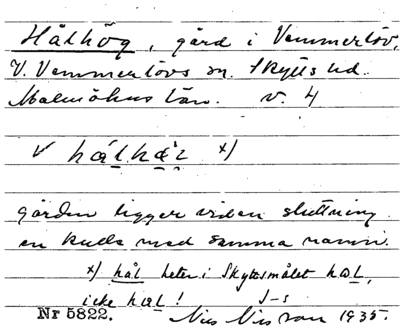 Hålhög, gård i Vemmerlöv,
V. Vemmerlövs sn. Skytts hd.
Malmöhus län. v. 4
√ hål hæ̀l x)
gården ligger vid en sluttning
en kulle med samma namn.
x) hål heter i Skyttsmålet hæl,
icke hæl! J-s
Nr 5822. Nils Nilsson 1935.